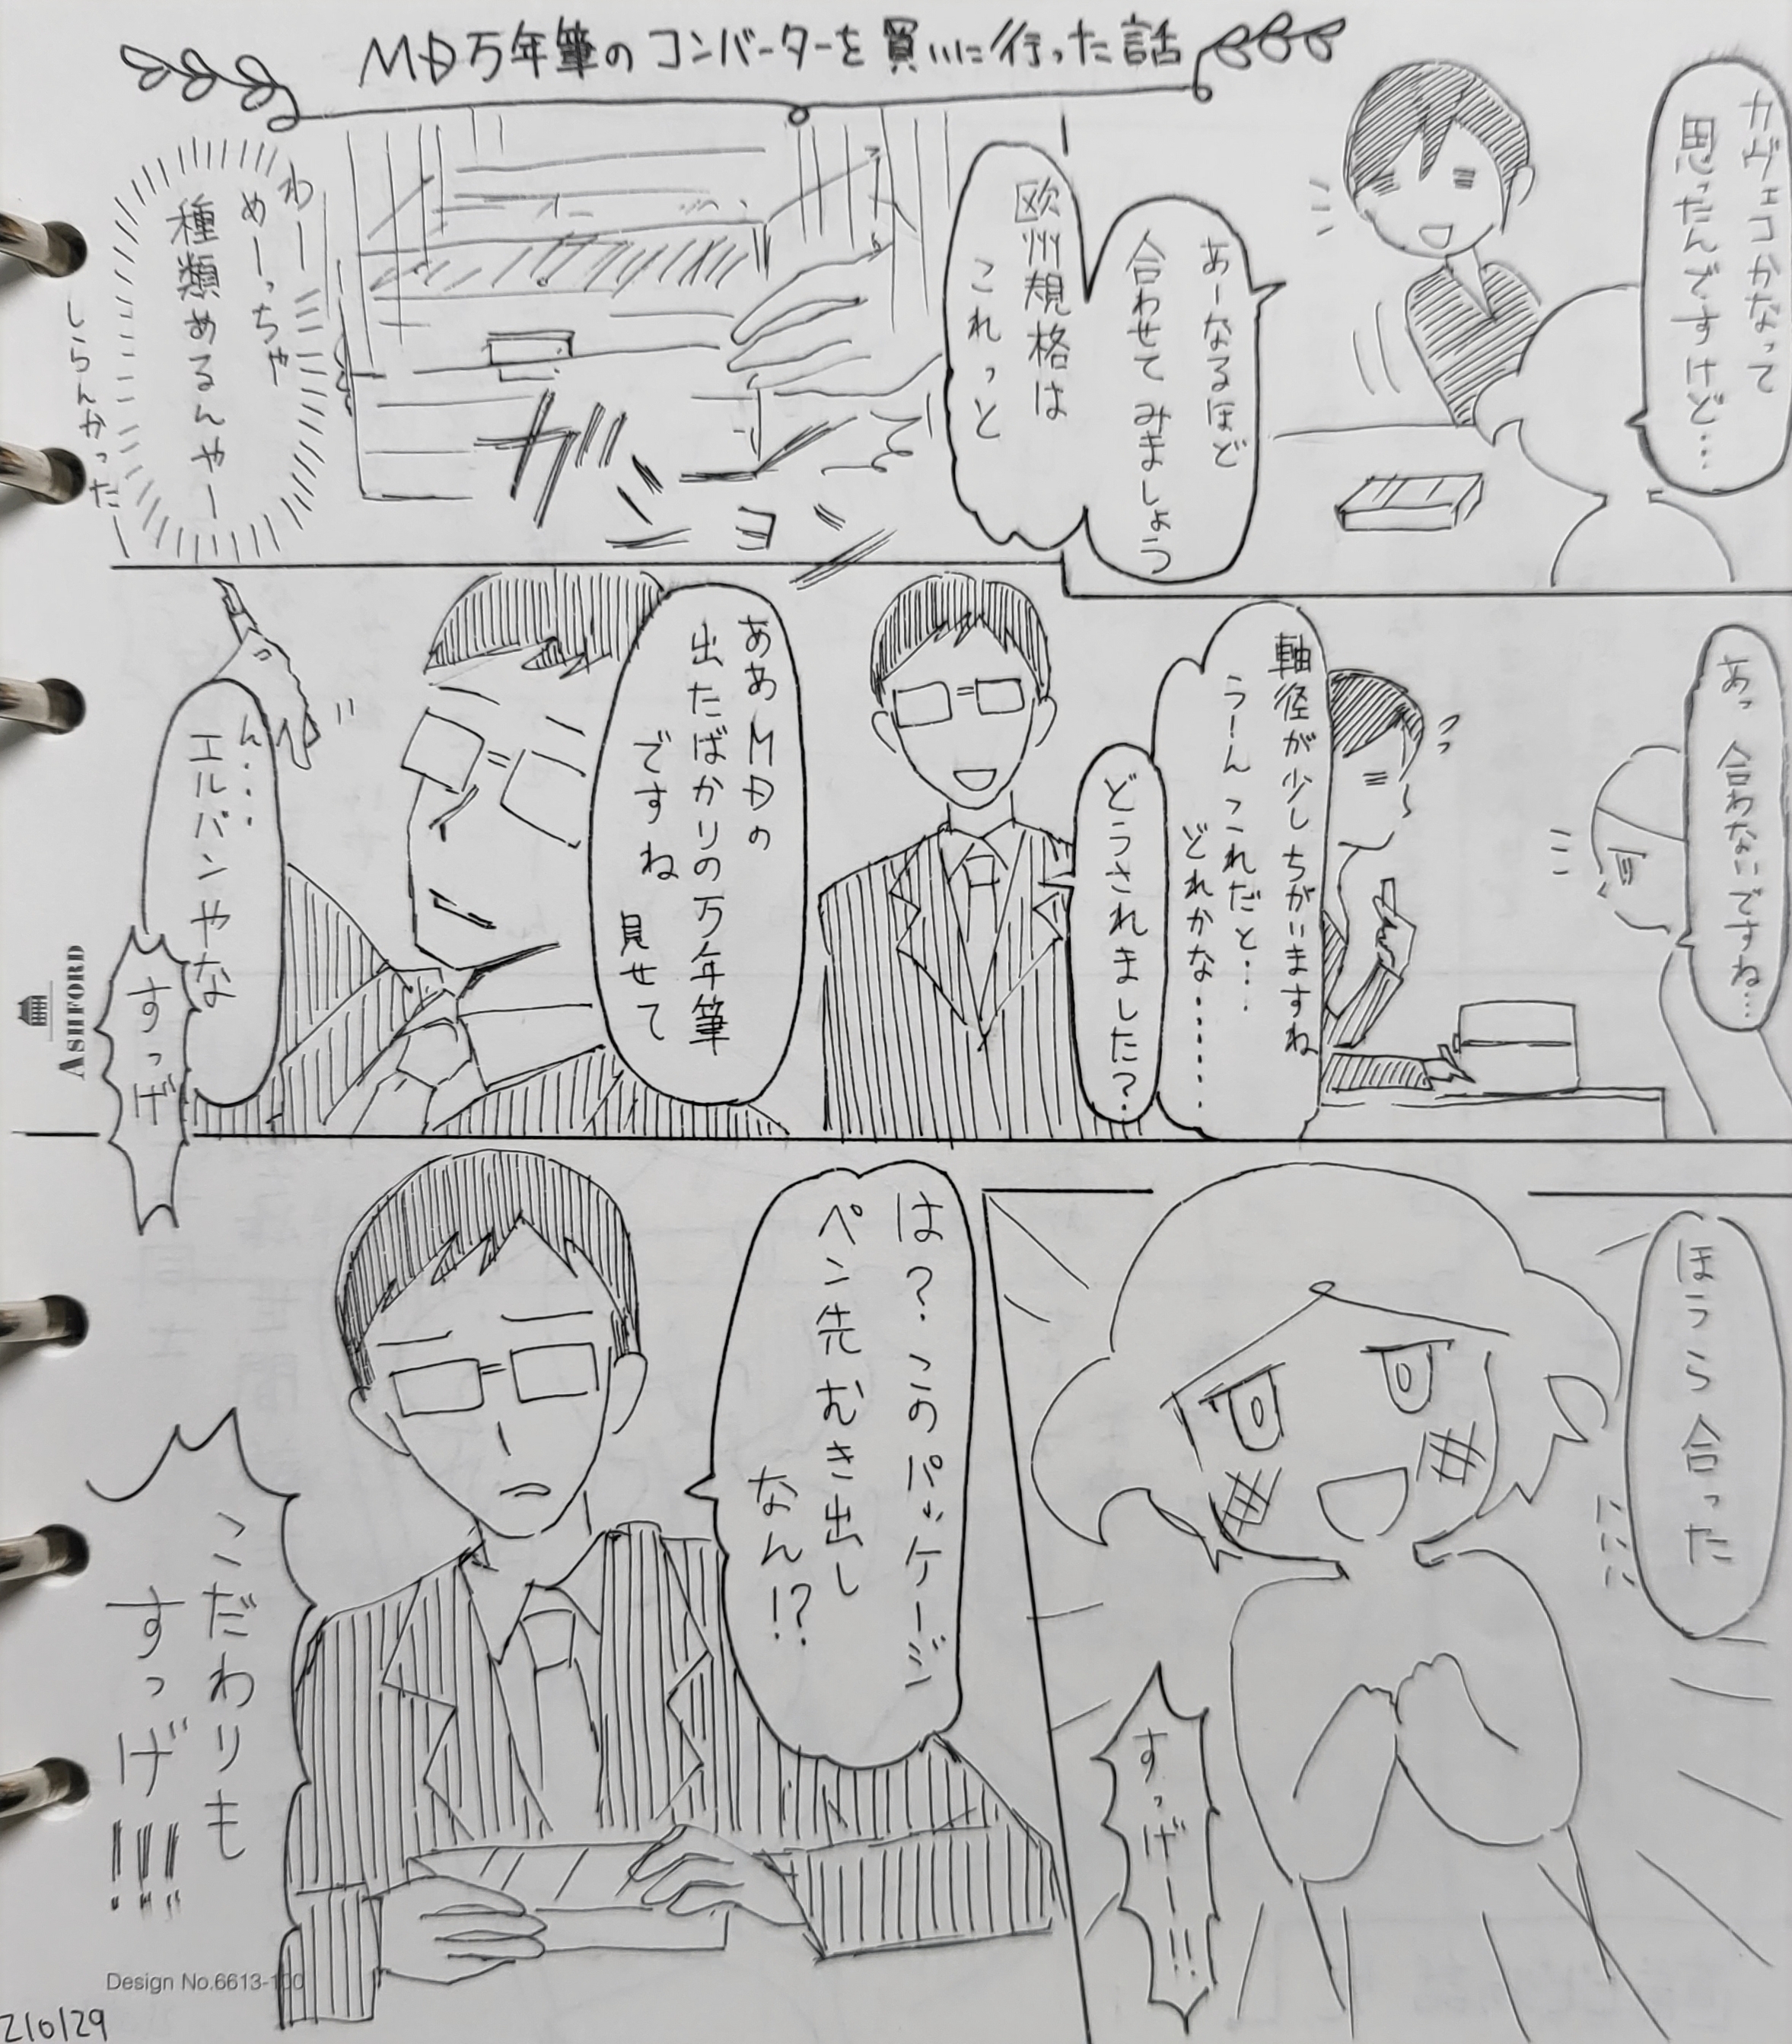 MD万年筆のコンバーターを買いに行った話
カヴェコかなって
思ったんですけど…
あーなるほど
合わせてみましょう
欧州規格は
これっと
ガション
わー
めーっちゃ
種類あるんやー
しらんかった
あっ 合わないですね…
軸径が少しちがいますね
うーん これだと…
どれかな……
どうされました?
ああMDの
出たばかりの万年筆
ですね 見せて
ん…
エルバンやな
すっげ
ほうら合った
すっげー!!
は?このパッケージ
ペン先むき出し
なん!?
こだわりも
すっげ!!!
ASHFORD
Design No.6613-100
210129